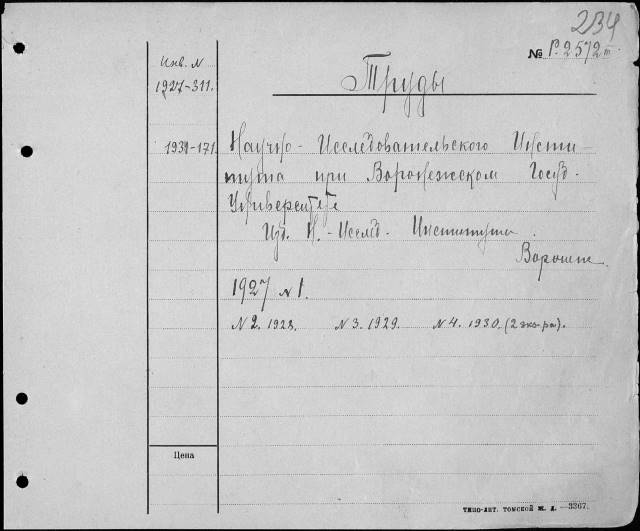 234
№ Р.2572 III
Инв. N
1927-311.
Труды
1931-171.
Научно-Исследовательского Инсти-
тута при Воронежском Госуд.
Университете
Изд. Н.-Исслд. Института.
Воронеж.
1927 N 1.
N 2. 1928. N 3. 1929. N 4. 1930. (2 экз-ра).
Цена
ТИПО-ЛИТ. ТОМСКОЙ Ж. Д. —3367.